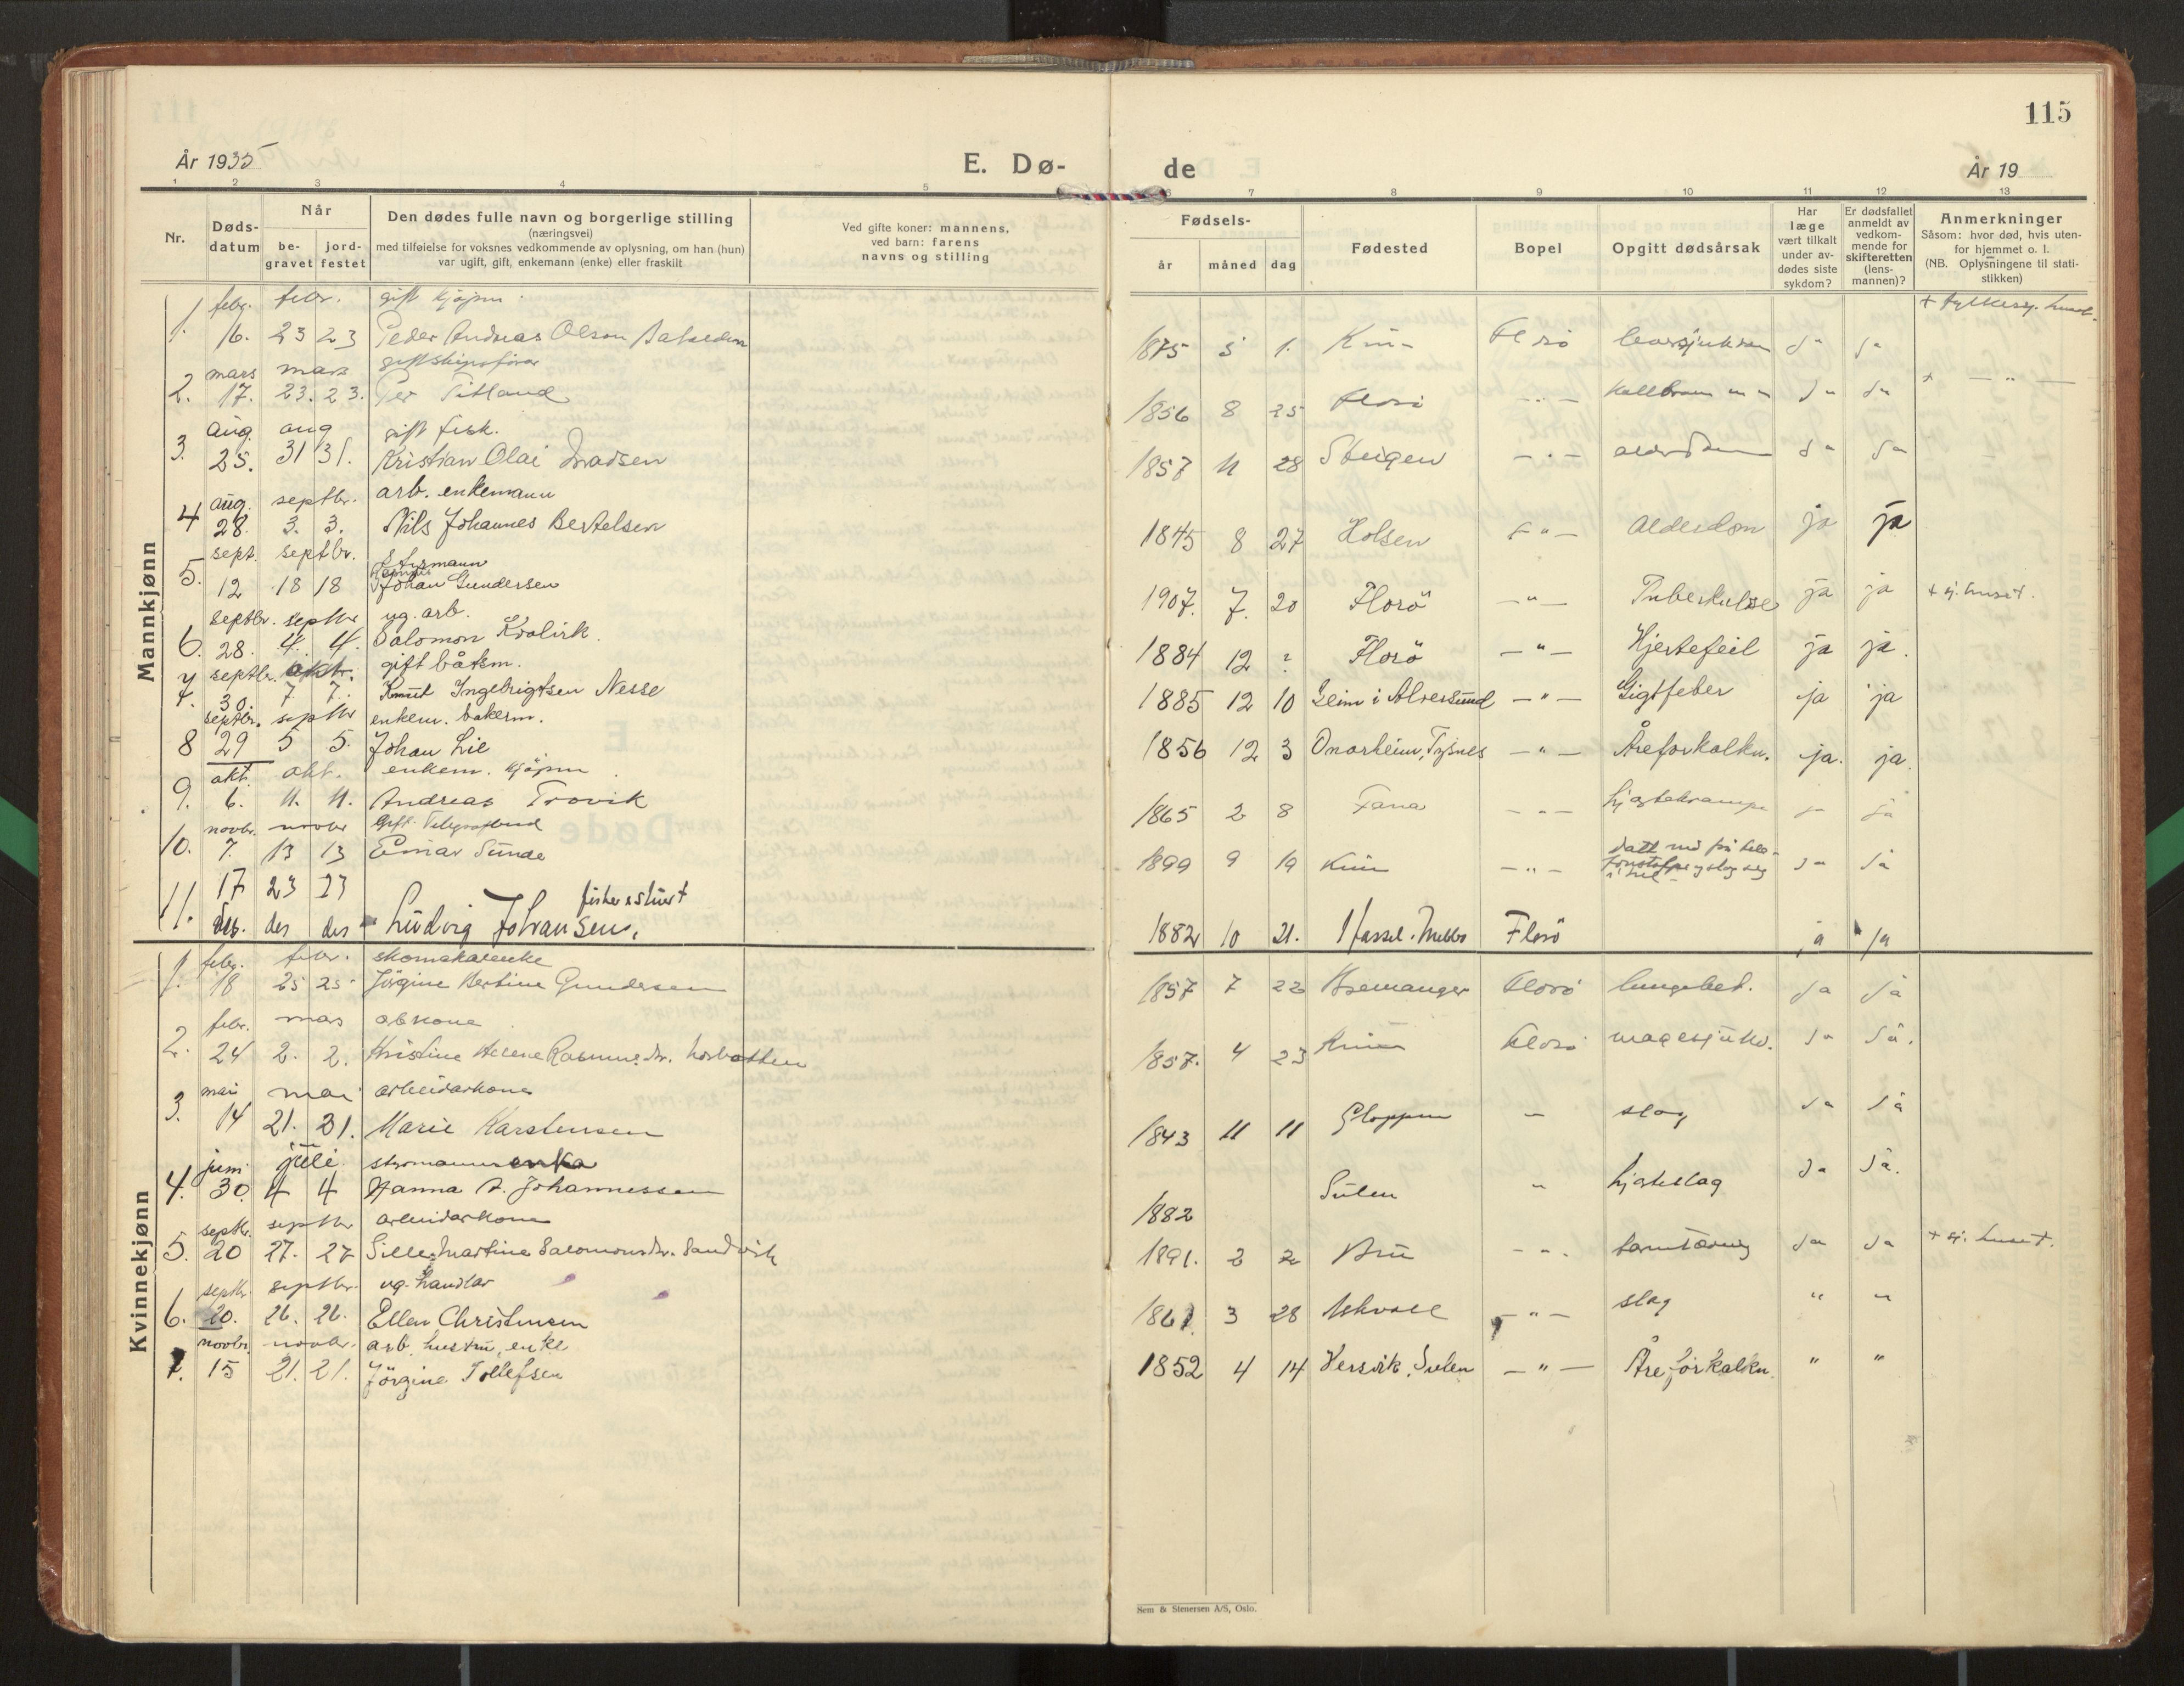 115
År 1935
E. Dø-
de
År 19
1 2 3 4 5
6 7 8 9 10 11 12 13
Nr.
Døds-
datum
Når
be-
gravet
jord-
festet
Den dødes fulle navn og borgerlige stilling
(næringsvei)
med tilføielse for voksnes vedkommende av oplysning, om han (hun)
var ugift, gift, enkemann (enke) eller fraskilt
Ved gifte koner: mannens,
ved barn: farens
navns og stilling
Fødsels-
år
måned
dag
Fødested
Bopel
Opgitt dødsårsak
Har
læge
vært tilkalt
under av-
dødes siste
sykdom?
Er dødsfallet
anmeldt av
vedkom-
mende for
skifteretten
(lens-
mannen)?
Anmerkninger
Såsom: hvor død, hvis uten-
for hjemmet o. l.
(NB. Oplysningene til stati-
stikken)
Mannkjønn
febr. febr. gift kjøpm.
1. 16. 23 23 Peder Andreas Olson
1875 5 1. Kinn Florø ja ja
mars mars gift skipsfører
2. 17. 23. 23. Per
1856 8 25 Florø - " - ja ja + - " -
aug. aug gift fisk.
3. 25. 31 31. Kristian Olai Madsen
1857 11 28 Steigen - " - alderdom ja ja
aug. septbr. arb. enkemann
4 28. 3. 3. Nils Johannes Bertelsen
1845 8 27 Holsen - " - Alderdom ja ja
sept. septbr.
5. 12 18 18 Johan Gundersen
1907. 7. 20 Florö - " - Tuberkulose ja ja + sj. huset.
septbr. septbr ug. arb.
6. 28. 4. 4. Salomon
1884 12 ? Florö - " - Hjertefeil ja ja.
septbr. okt. gift båtsm.
7. 30. 7 7. Knut Ingebrigtsen Nesse
1885 12 10 Seim i Alversund - " - Gigtfeber ja ja
septbr. septbr enkem. bakerm.
8 29 5 5. Johan Lie
1856 12 3 Onarheim, Tysnes - " - Åreforkalkn. ja. ja.
okt. okt. enkem. kjöpm
9. 6. 11. 11. Andreas Trovik
1865 2 8 Fana - " - hjartekrampe ja ja
novbr. novbr Gift. Telegrafbud
10. 7. 13 13 Einar Sunde
1899 9 19 Kinn - " - ja ja
17 23 23
11. des. des des Ludvig Johansen.
1882 10 21. Florö ja ja
Kvinnekjønn
febr. febr. skomakarenke
1. 18 25 25 Jörgine Bertine Gundersen
1857 7 22 Bremanger Florö lungebet. ja ja
febr. mars
2. 24 2. 2. Kristine Helene
1857. 4 23 Kinn Florö magesjukd. ja ja.
mai mai arbeidarkone
3. 14 21. 21. Marie Karstensen
1843 11 11 Gloppen " slag ja ja
juni juli
4. 30. 4 4 Hanna A. Johannessen
1882 Sulen " hjarteslag ja ja.
septbr. septbr arbeidarkone
5. 20 27. 27 Sille Martine Salomonsdr. Sandvik
1891. 2 2 Bru - " - ja ja + sj. huset.
septbr. septbr. ug. handlar
6. 20. 26. 26. Ellen Christensen
1861. 3 28 Askvoll - " - slag " "
novbr. novbr. arb. hustru, enke
7. 15 21. 21. Jörgine Tollefsen
1852 4 14 Hersvik, Sulen - " - Åreforkalkn. " "
Sem & Stenersen A/S, Oslo.